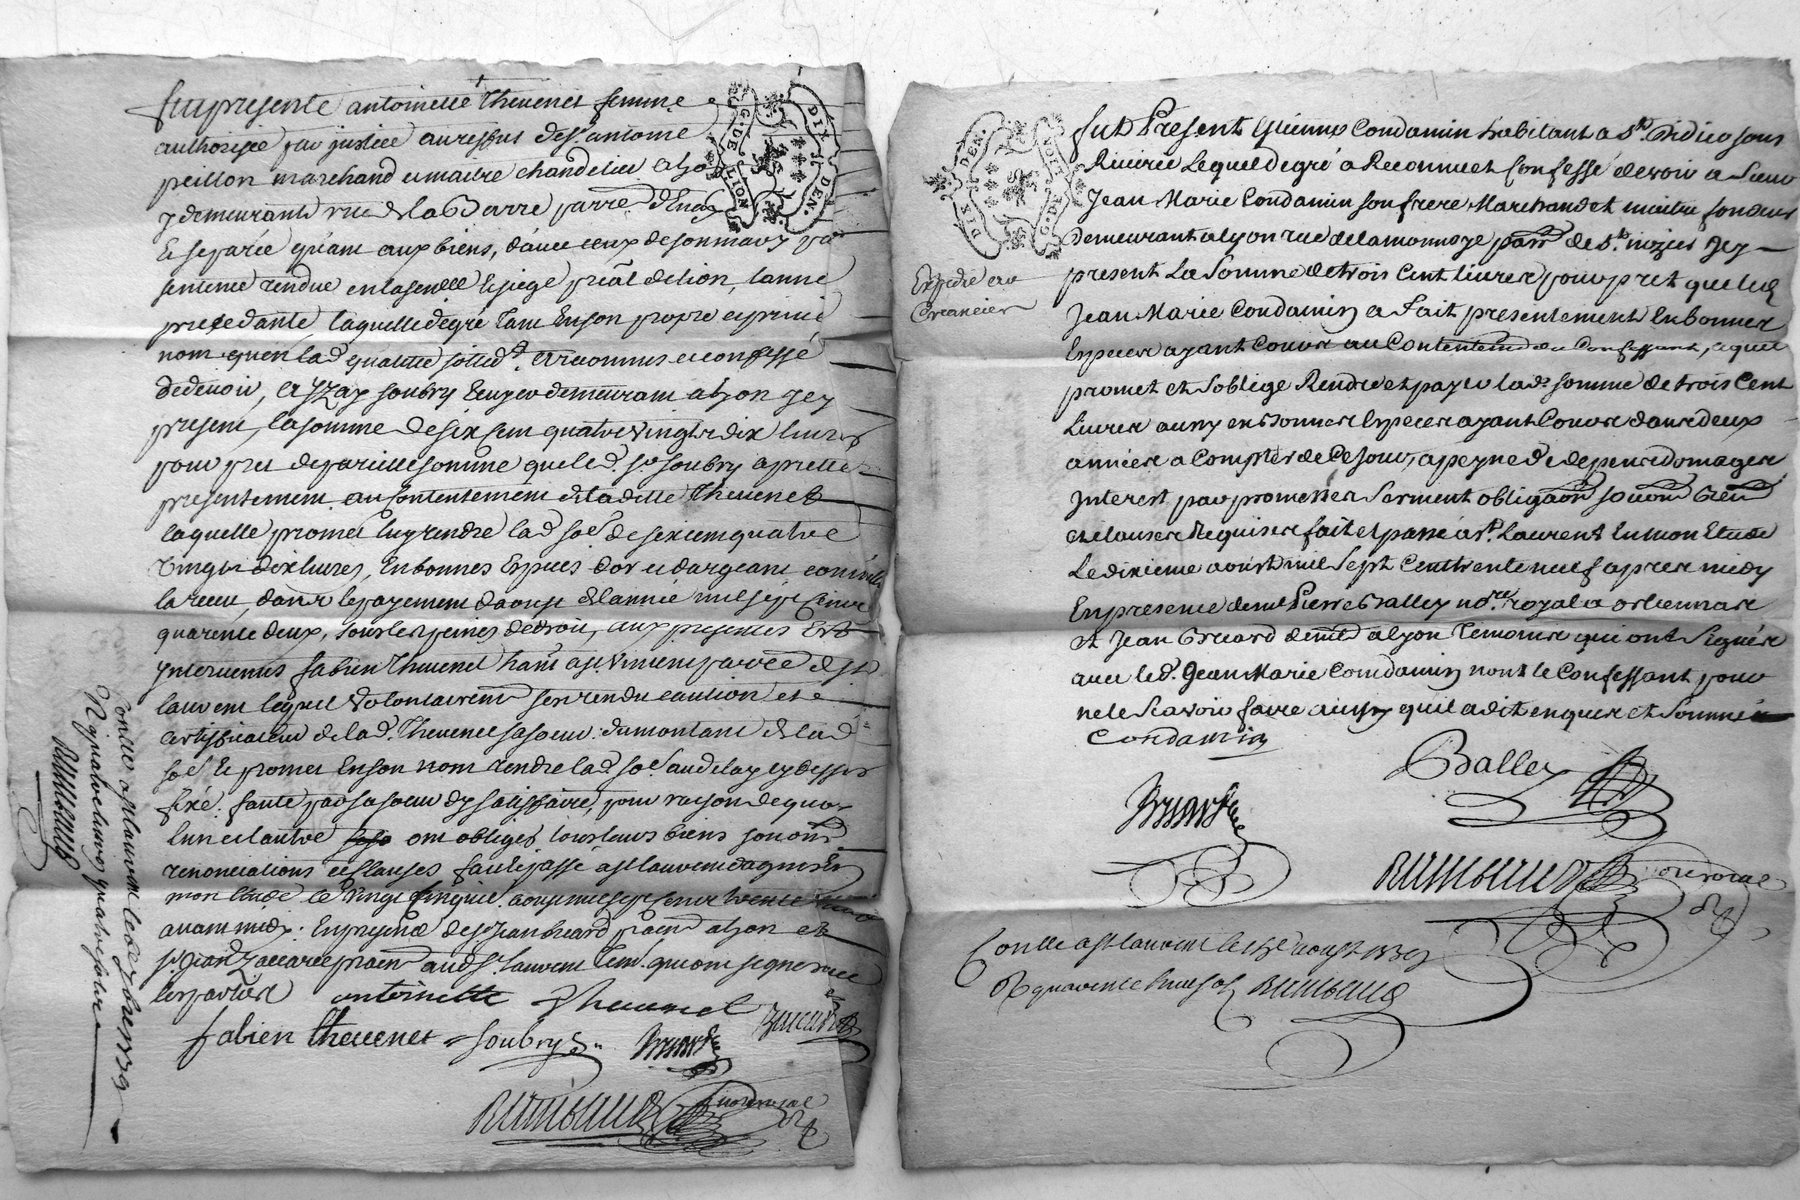 fut presente antoinette Thevenet femme
authorisée par justice au refus de sr. antoine
peillon marchand et maitre chandelier a lyon
y demeurante rue de la Barre parr.e d'Enay
Et separée quant aux biens, d'avec ceux de son mary par
sentence rendue en la senéé et siege preal de lion, lannee
precedante, laquelle de gré tant En son propre et privé
nom qu'en lad. qualitté a reconnus et confessé
de devoir, a soubry demeurant a lyon Jcy
present, la somme de six cent quatre vingt dix livres
pour pret de pareille somme que led. sr. soubry a pretté
presentement au contentement de ladite Thevenet
laquelle promet luy rendre lad. soe. de six cent quatre
vingt dix livres, En bonnes Especes dor et dargeant
dans le payement daoust de lannée mil sept Cent
quarente deux, sous les peines de droit, aux presentes Est
Jntervenus fabien Thevenet parr.e de st.
laurent lequel volontairement sest rendu caution et
certifficateur de lad. Thevenet sa soeur du montant de lad.
soe. Et promet En son nom rendre lad. soe. au delay cy dessus
fixé. faute par sa soeur dy satisfaire, pour raison de quoy
lun et lautre ont obligés tous leurs biens
renonciations et clauses fait et passé a st laurent dagny En
mon Etude le vingt cinquie. aoust mil sept cent trente neuf
avant midy. En presence de sr Jean briard prаcn. a lyon et
sr. Jean Zacarie praen. aud. st. laurent Tem. qui ont signé avec
les parties
antoinette Thevenet
fabien thevenet soubry briard Zacarie
no.re royal
Conllé a st laurent le 7bre 1739
R quatre livres quatre sols
DIX DEN.
G. DE LION
DIX DEN.
G. DE LION
Expedié au
Creancier
fut Present Etienne Condamin habitant a St. Didier sous
Riverie Lequel de gré a Reconnu et Confessé devoir a Sieur
Jean Marie Condamin son frere Marchand et maitre fondeur
demeurant a lyon rue de la monnoye parr. de St. nizier Jcy
present La Somme de trois Cent livres pour pret que led.
Jean Marie Condamin a Fait presentement En bonnes
Especes ayant Cours au Contentemt. du Confessant, a quil
promet et Soblige Rendre et payer lad. somme de trois Cent
Livres aussy en Bonnes Especes ayant Cours dans deux
années a Compter de Ce jour, a peyne de depens domages
Jnterest par promesses Serment obligaon.
et clauses Requises fait et passé a st. Laurent En mon Etude
Le dixieme aoust mil Sept Cent trente neuf apres midy
En presence de me. Pierre Balley no.re royal a
et Jean briard demt. a lyon Temoins qui ont Signés
avec led. Jean Marie Condamin non le Confessant pour
ne le Scavoir faire ainsy quil a dit enquis et Sommé
Condamin
Balley
briard
no.re royal
Conllé a st laurent le aoust 1739
R quarente huit sols